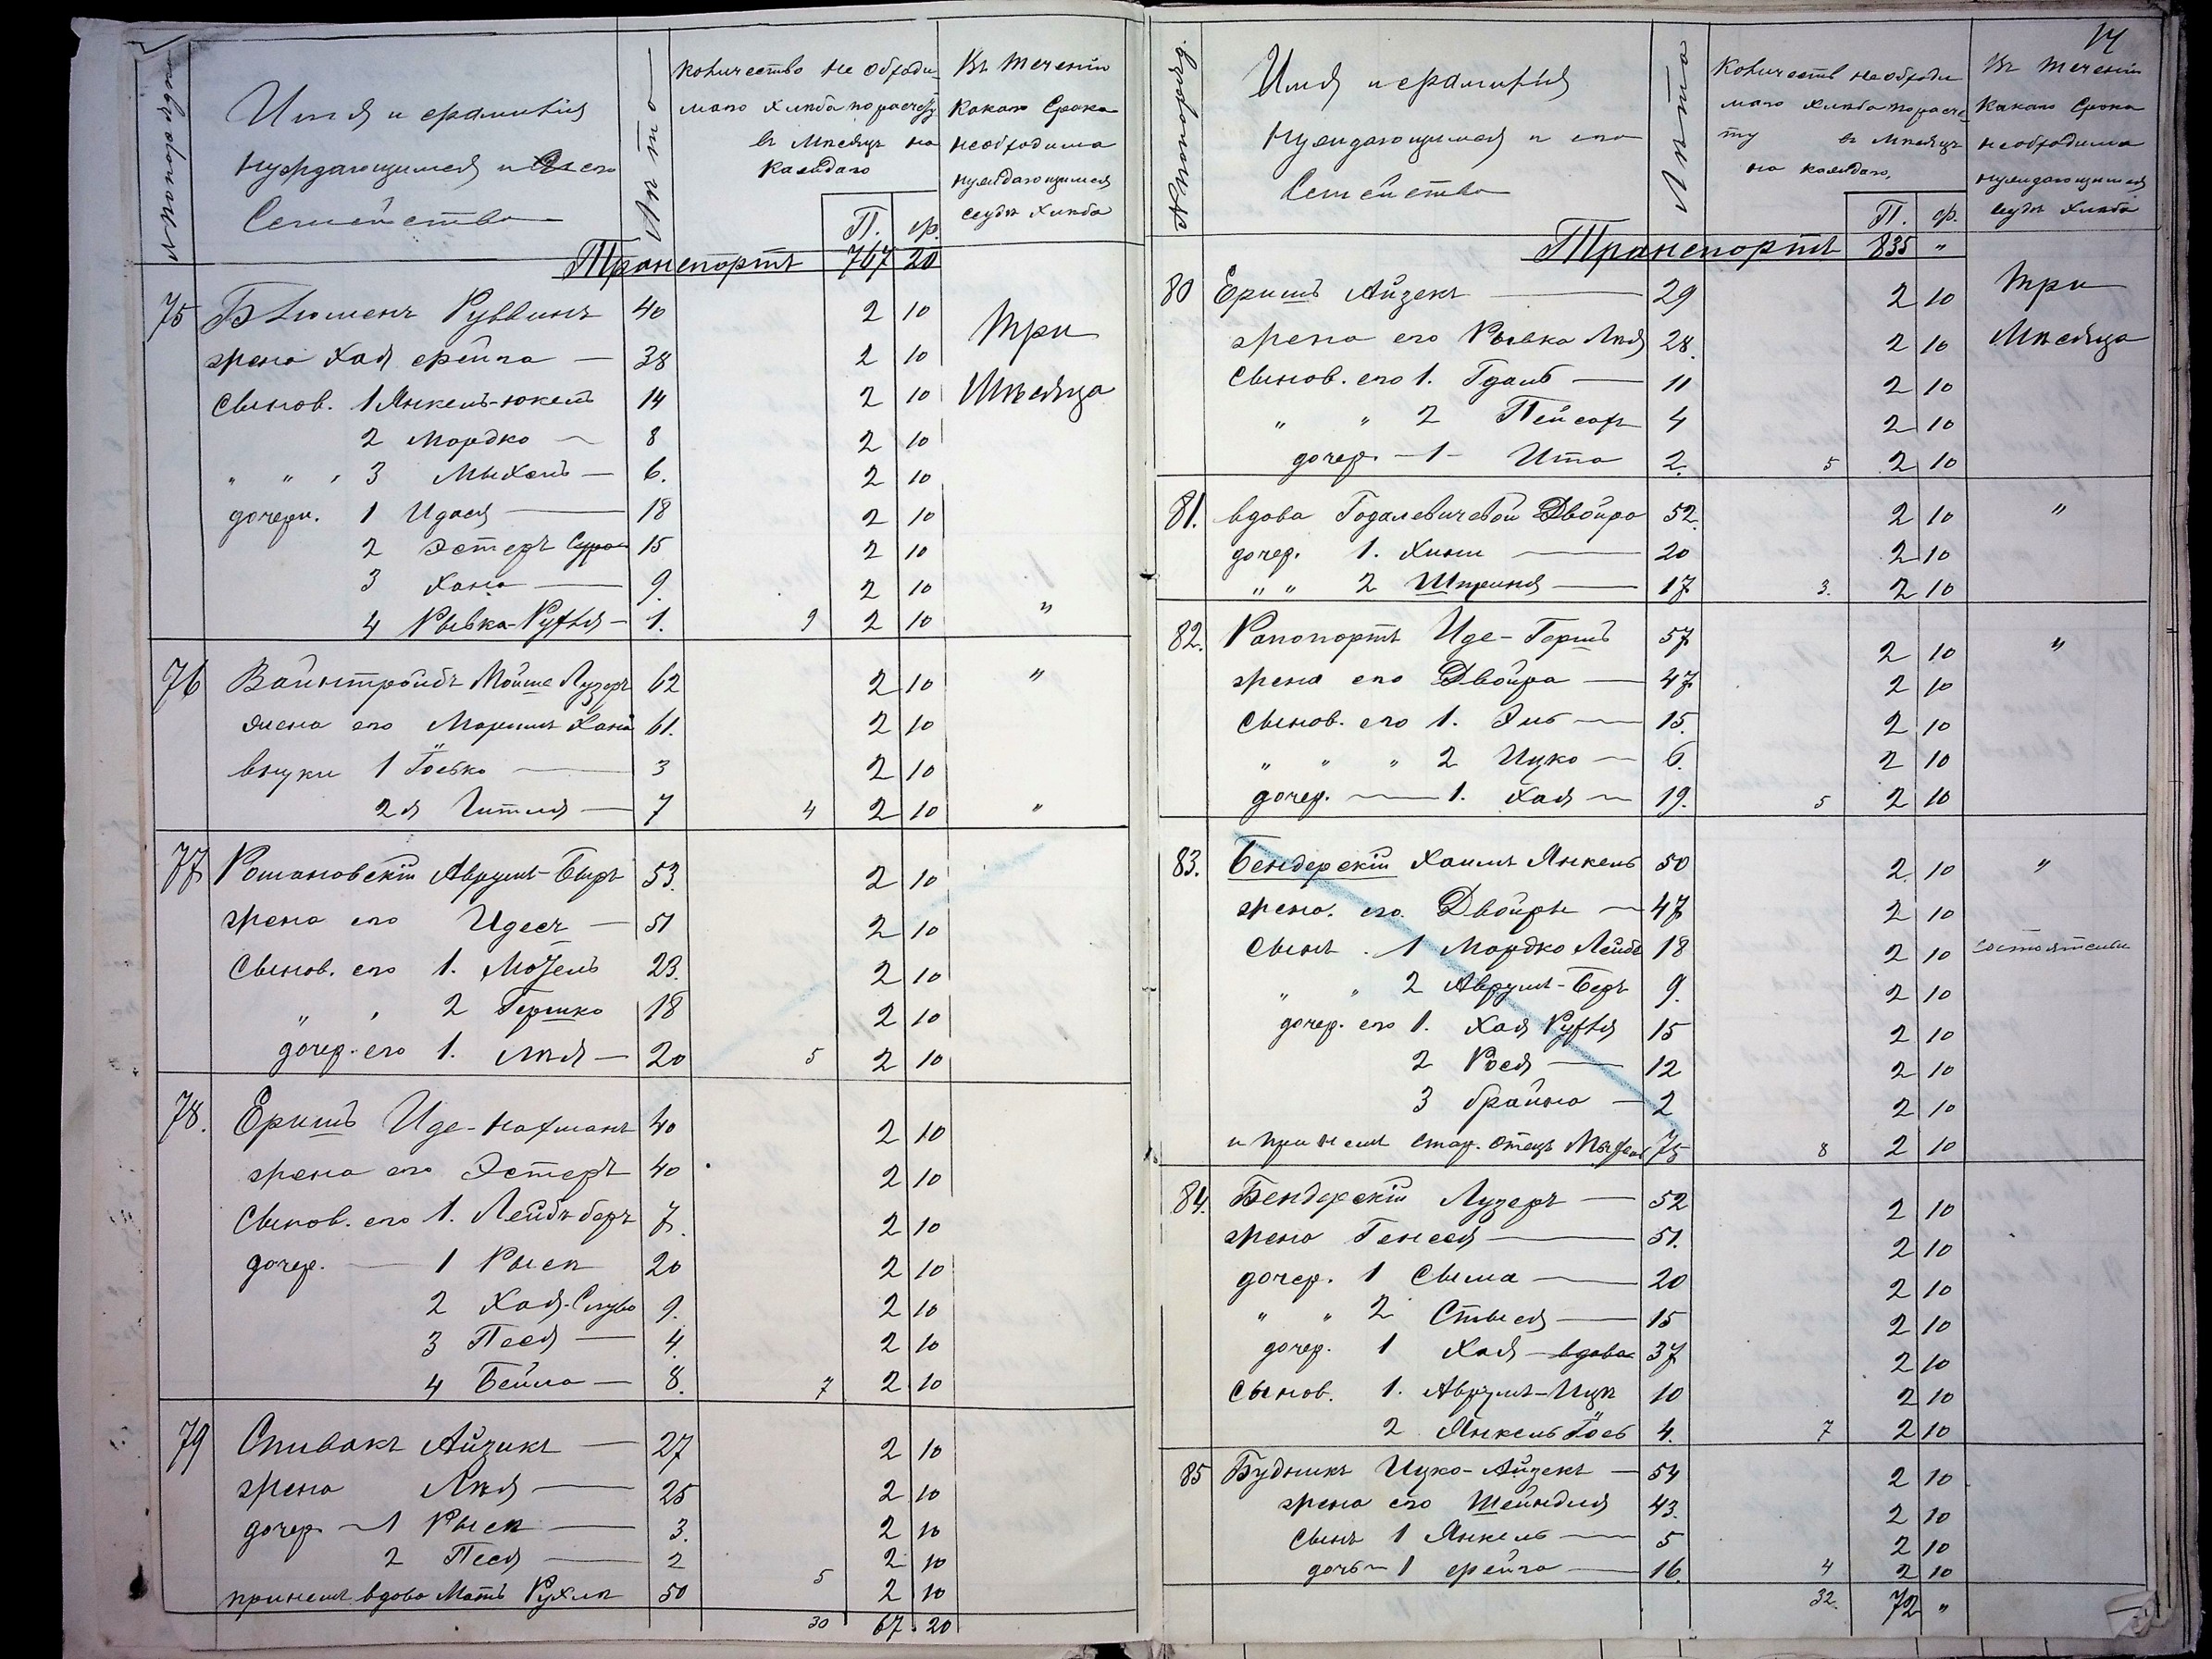 № по порядку
Имя и фамилія
нуждающимся и его
Семейства
Лѣта
Количество не обходи
маго хлѣба по расчету
въ мѣсяцъ на
каждаго
П. ф.
Въ теченіи
какаго срока
необходима
нуждающимся
ссуда хлѣба
Транспортъ 767 20
75 Блюменъ Руввинъ 40 2 10 три
жена Хая Фейга — 38 2 10
Сынов. 1 Янкель-Юкель 14 2 10 Мѣсяца
2 Мордко — 8 2 10
" " " 3 Мыхель — 6. 2 10
дочери. 1 Идася — 18 2 10
2 Эстеръ Сура 15 2 10
3 Хана — 9. 2 10
4 Рывка-Рухля — 1. 9 2 10 "
76 Вайнтройбъ Мойше Лузеръ 62 2 10 "
жена его Хана 61. 2 10
внуки 1 Іосько — 3 2 10
2я Гитля — 7 4 2 10 "
77 Романовскій Аврумъ-Беръ 53. 2 10
жена его Идесъ — 51 2 10
Сынов. его 1. Мотель 23. 2 10
" " 2 Гершко 18 2 10
дочер. его 1. Лѣя — 20 5 2 10
78. Еришъ Иде-Нахманъ 40 2 10
жена его Эстеръ 40 2 10
Сынов. его 1. Лейбъ беръ 7. 2 10
дочер. — 1 Рыся 20 2 10
2 Хая-Слува 9. 2 10
3 Песя — 4. 2 10
4 Бейла — 8. 7 2 10
79 Спивакъ Айзикъ — 27 2 10
жена Лѣя — 25 2 10
дочер — 1 Рыся — 3. 2 10
2 Песя — 2 2 10
при немъ вдова Мать Рухля 50 5 2 10
30 67. 20
14
№ по порядку
Имя и фамилія
нуждающимся и его
Семейства
Лѣта
Количеств необходи
маго хлѣба по расче
ту въ мѣсяцъ
на каждаго,
П. ф.
Въ теченіи
какаго срока
необходима
нуждающимся
ссуда хлѣба
Транспортъ 835 "
80 Еришъ Айзекъ — 29 2 10 три
жена его Рывка Лѣя 28. 2 10 Мѣсяца
Сынов. его 1. Гдаль — 11 2 10
" " 2 Пейсахъ 4 2 10
дочер. — 1 — Ита 2. 5 2 10
81. вдова Годалевичевой Двойра 52. 2 10 "
дочер. 1. Хини — 20 2 10
" " 2 Шприня — 17 3. 2 10
82. Рапопортъ Иде-Гершъ 57 2 10 "
жена его Двойра — 47 2 10
Сынов. его 1. Эль — 15. 2 10
" " " 2 Ицко — 6. 2 10
дочер. — 1. Хая — 19. 5 2 10
83. Бендерскій Хаимъ Янкель 50 2 10 "
жена. его. Двойра — 47 2 10
Сынъ . 1 Мордко Лейбъ 18 2 10 состоятельн
" " 2 Аврумъ-Беръ 9. 2 10
дочер. его 1. Хая Рухля 15 2 10
2 Рося — 12 2 10
3 брайна — 2 2 10
и при немъ стар. отецъ Мыхель 75 8 2 10
84. Бендерскій Лузеръ — 52 2 10
жена Генеся — 51. 2 10
дочер. 1 Сыма — 20 2 10
" " 2 Стыся — 15 2 10
дочер. 1 Хая — вдова 37 2 10
Сынов. 1. Аврумъ-Ицк 10 2 10
2 Янкель Іось 4. 7 2 10
85 Будникъ Ицко-Айзекъ — 54 2 10
жена его Шейндля 43. 2 10
Сынъ 1 Янкель — 5 2 10
дочь — 1 Фейга — 16. 4 2 10
32. 72 "